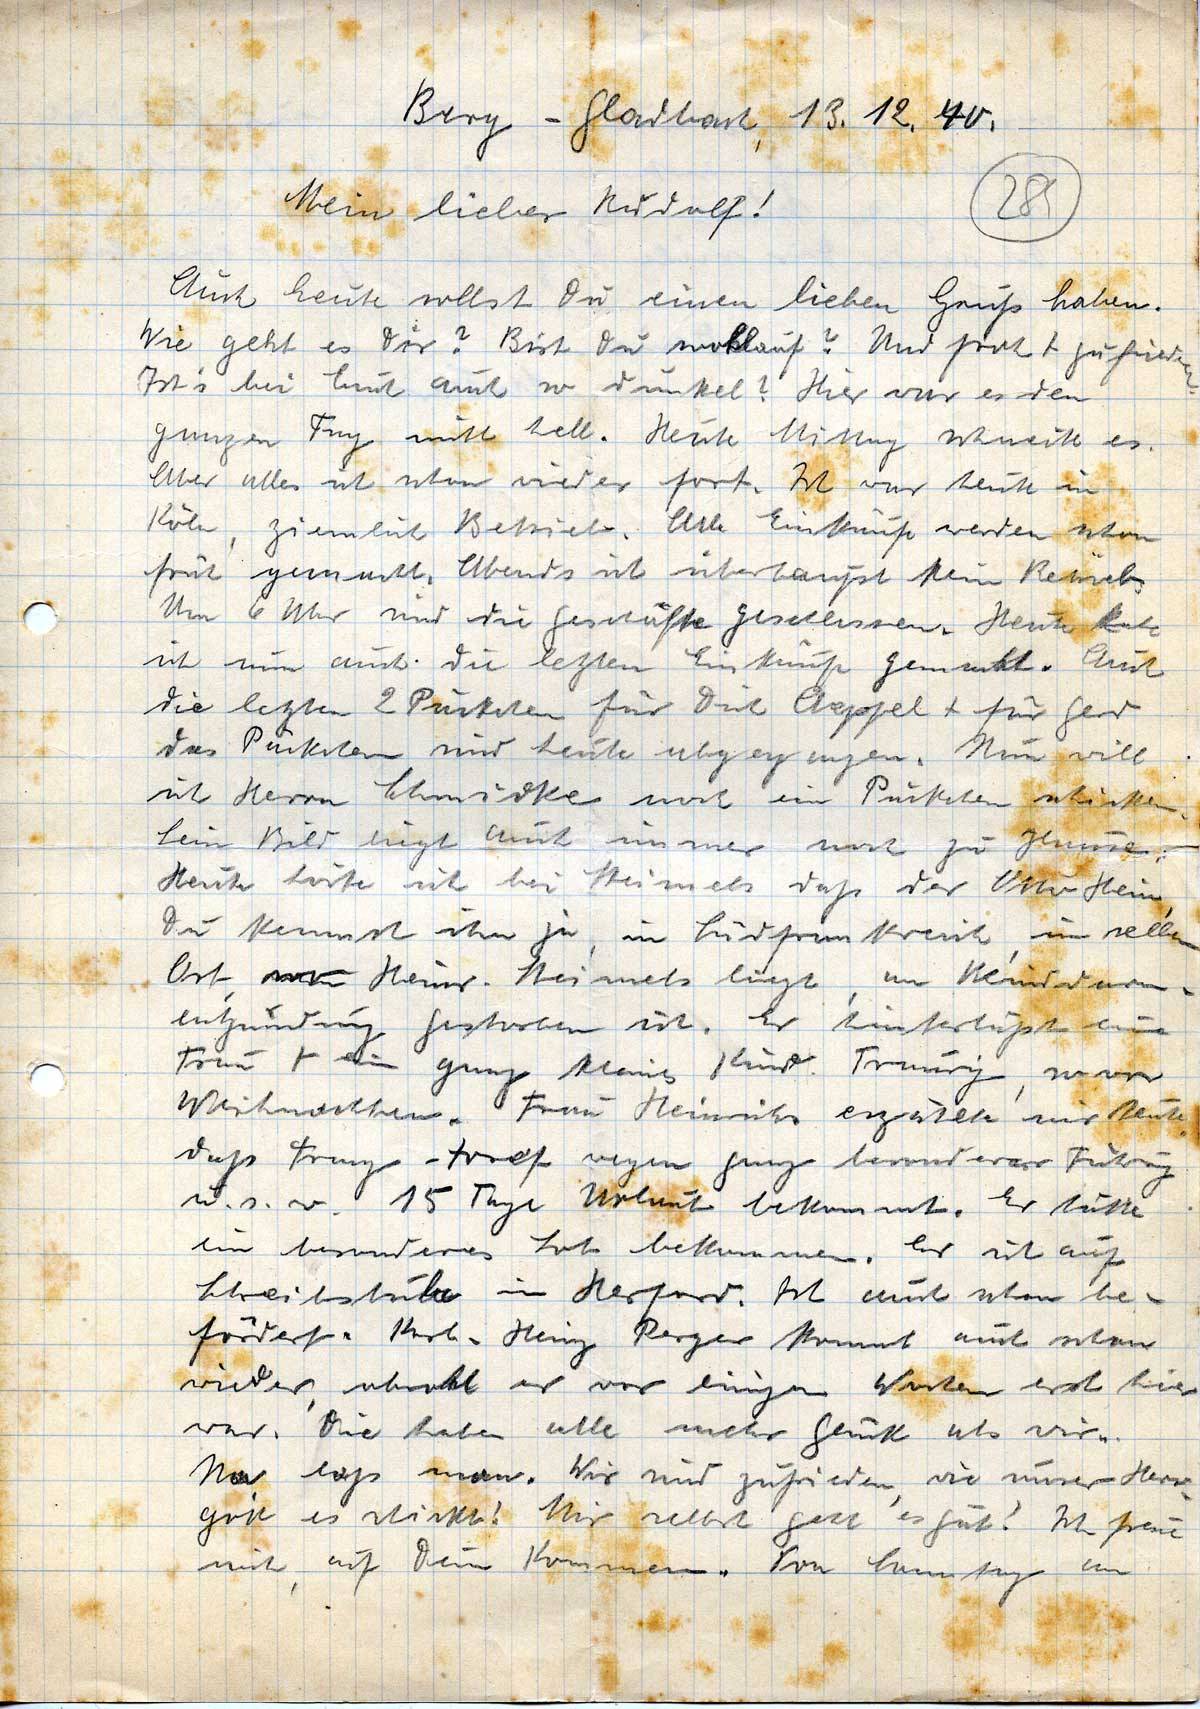 Berg - Gladbach, 13. 12. 40.
285
Mein lieber Rudolf!
Auch heute sollst Du einen lieben Gruß haben.
Wie geht es Dir? Bist Du wohlauf? Und froh + zufrieden.
Ist's bei Euch auch so dunkel? Hier war es den
ganzen Tag nicht hell. Heute Mittag schneite es.
Aber alles ist schon wieder fort. Ich war heute in
Köln, ziemlich Betrieb. Alle Einkäufe werden schon
früh gemacht. Abends ist überhaupt kein Betrieb
Um 6 Uhr sind die Geschäfte geschlossen. Heute habe
ich nun auch die letzten Einkäufe gemacht. Auch
die letzten 2 Päckchen für Dich Aeppel + für Gerd
das Päckchen sind heute abgegangen. Nun will
ich Herrn Schmidtke noch ein Päckchen schicken.
Sein Bild liegt auch immer noch zu Hause.
Heute hörte ich bei Steimels daß der Otto Heim,
Du kennst ihn ja, in Südfrankreich, im selben
Ort, wo Heinr. Steimels liegt, an Blinddarm-
entzündung gestorben ist. Er hinterläßt eine
Frau + ein ganz kleines Kind. Traurig, so vor
Weihnachten. Frau Heinrichs erzählte mir heute,
daß Franz-Josef wegen ganz besonderer Führung
u.s.w. 15 Tage Urlaub bekommt. Er hätte
ein besonderes Lob bekommen. Er ist auf
Schreibstube in Herford. Ist auch schon be-
fördert. Karl-Heinz Berger kommt auch schon
wieder, obwohl er vor einigen Wochen erst hier
war. Die haben alle mehr Glück als wir.
Na, laß man. Wir sind zufrieden, wie unser Herr-
gott es schickt! Mir selbst geht es gut! Ich freue
mich, auf Dein Kommen. Von Samstag an